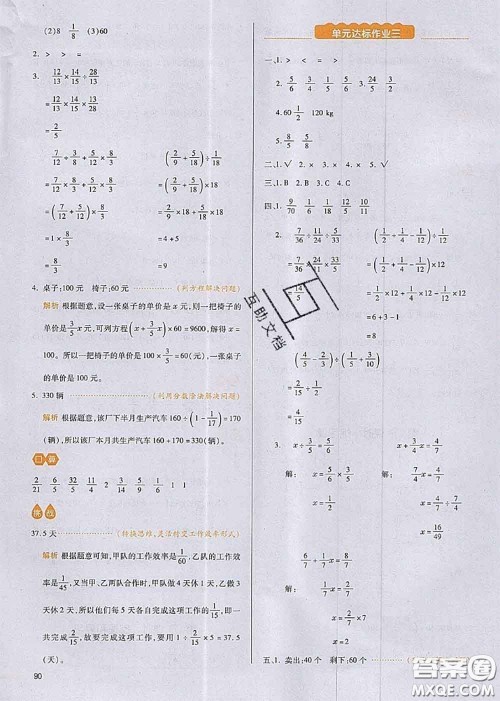 (2)8 1/8 (3)60
3. 12/13×14/15÷28/13
=12/13×14/15×13/28
=2/5
7/12÷3/8+5/12×8/3 (2/9+5/18)÷1/18
=7/12×8/3+5/12×8/3 =(2/9+5/18)×18
=(7/12+5/12)×8/3 =2/9×18+5/18×18
=1×8/3 =4+5
=8/3 =9
4. 桌子:100 元 椅子:60 元 (列方程解决问题)
解析 根据题意,设一张桌子的单价是 x 元,则一把椅子的
单价是3/5x元,可列方程(x+3/5x)×60=9600,解得 x=
100。所以一把椅子的单价是 100×3/5=60(元),一张桌子
的单价是 100 元。
5. 330 辆 (利用分数除法解决问题)
解析 根据题意,该厂下半月生产汽车 160÷(1-1/17)=170
(辆),所以该厂本月共生产汽车 160+170=330(辆)。
口算
2/21 6/5 5/6 32/5 5/11 1/4 2/9 1 1
挑战
37.5 天 (转换思维,灵活转变工作效率形式)
解析 根据题意可知,甲队的工作效率为1/60,乙队的工作效
率是1/45,又当甲、乙两队合作时,甲队做 4 天休 1 天,乙做 3
天休 2 天,所以他们每 5 天各自完成这项工作的1/15,即一
共完成2/15,故要完成这项工作需要 5×(1÷2/15)=37.5
(天)。
90
单元达标作业三
一、1. > < = > 2. 5/6 3/4 3. 1/24 5/6
4. 60 1/2 120 kg
5. 8/5 5/8
二、1. √ 2. × 3. × 4. × 5. √
三、1. B 2. B 3. C 4. A
四、1. 9/70 1/6 1/18 12/5 10/11
2. 7/36÷11/30÷5/33 (1/2+1/4-1/12)÷1/12
=7/36×30/11×33/5 =(1/2+1/4-1/12)×12
=14/5 =6+3-1
=8
(4/5-2/3)÷(1/5+1/3)
=2/15÷8/15
=1/4
3. 5/3x=5/6 x+3/4x=4/7
解: x=5/6×3/5 解: 7/4x=4/7
x=1/2 x=4/7×4/7
x=16/49
x÷2/7=1/2
解: x=1/2×2/7
x=1/7
五、1. 卖出:40 个 剩下:60 个
互助文档
答案圈
MXQE.COM